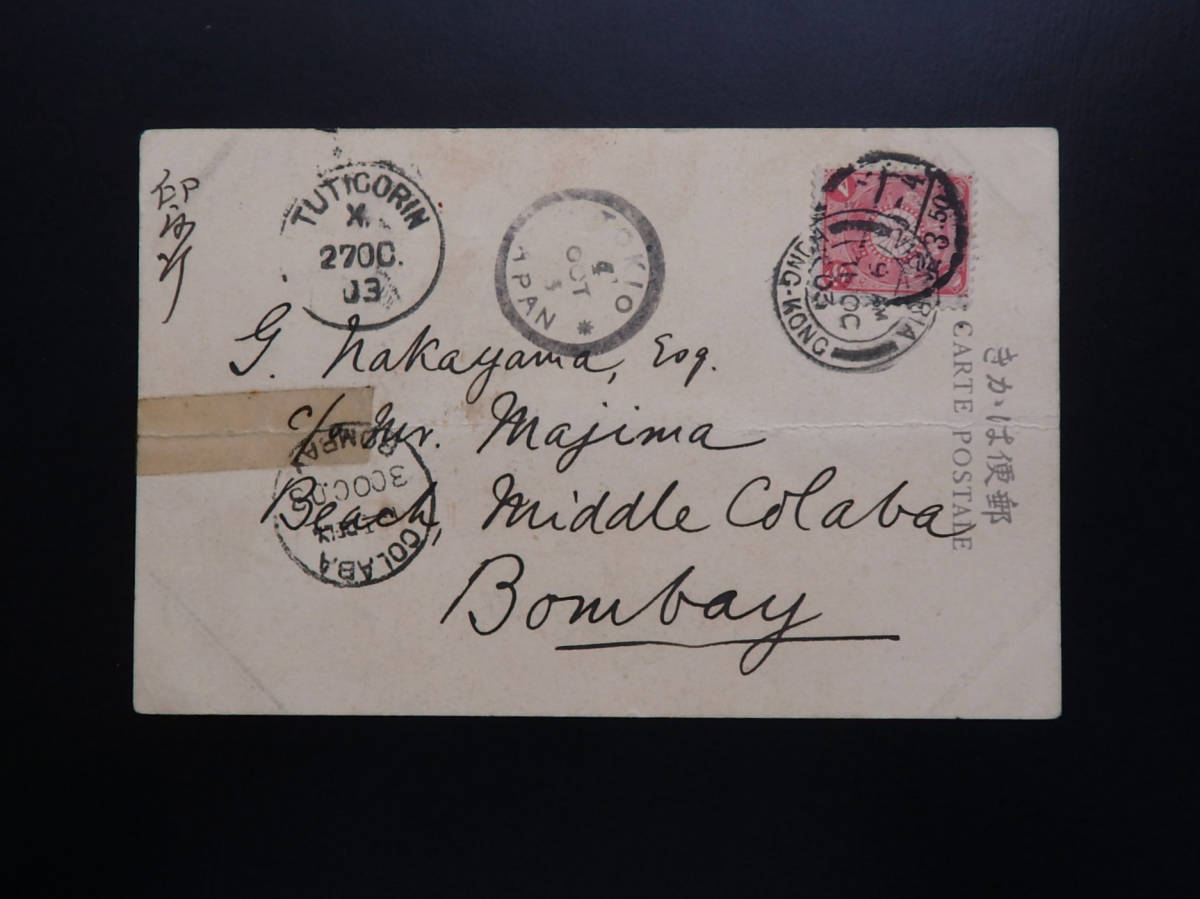 TUTICORIN
X.
27OC.
03
TOKIO
OCT
JAPAN
3.50
VICTORIA
OC
03
HONG-KONG
G. Nakayama, Esq.
c/o Mr. Majima
Beach Middle Colaba
Bombay
BOMBAY
30OC.03
COLABA
きかは便郵
CARTE POSTALE